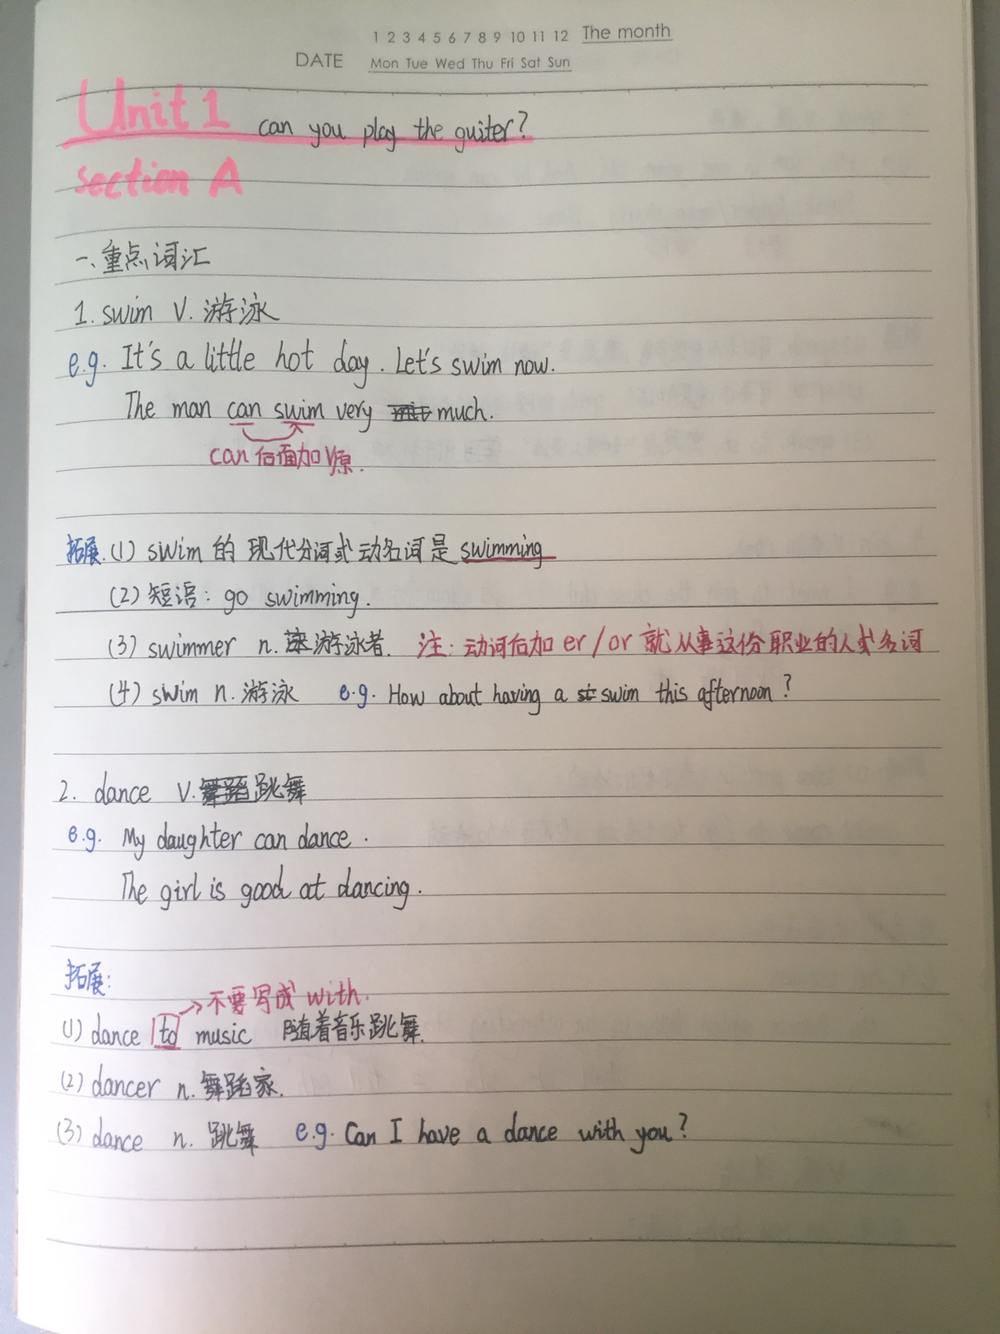 1 2 3 4 5 6 7 8 9 10 11 12 The month
DATE Mon Tue Wed Thu Fri Sat Sun
Unit 1 can you play the guiter?
section A
一、重点词汇
1. swim V. 游泳
e.g. It's a little hot day. Let's swim now.
The man can swim very much.
can 后面加 V原.
拓展. (1) swim 的 现代分词或动名词是 swimming
(2) 短语: go swimming.
(3) swimmer n. 游泳者. 注: 动词后加 er/or 就从事这份职业的人或名词
(4) swim n. 游泳 e.g. How about having a swim this afternoon?
2. dance V. 跳舞
e.g. My daughter can dance.
The girl is good at dancing.
拓展:
→不要写成 with.
(1) dance to music 随着音乐跳舞.
(2) dancer n. 舞蹈家.
(3) dance n. 跳舞 e.g. Can I have a dance with you?